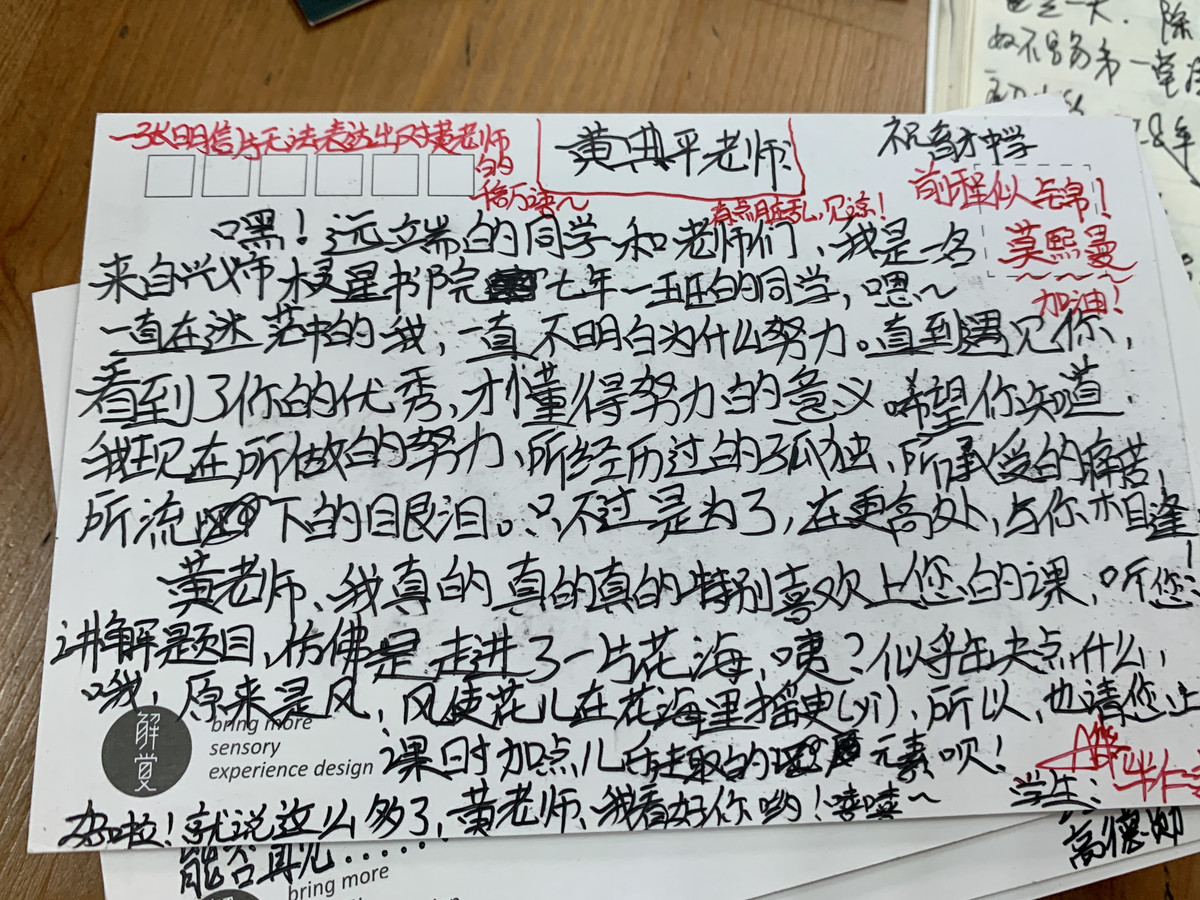 一张明信片无法表达出对黄老师
的
千言万语~
黄典平老师:
祝育才中学
前程似锦!
有点脏乱,见谅!
莫熙曼
加油!
嘿!远端的同学和老师们,我是一名
来自兴义市 书院 七年一班的同学,嗯~
一直在迷茫中的我,一直不明白为什么努力。直到遇见你,
看到了你的优秀,才懂得努力的意义 希望你知道,
我现在所做的努力、所经历过的孤独、所承受的痛苦,
所流 下的眼泪。只不过是为了,在更高处,与你相逢!
黄老师、我真的真的真的特别喜欢上您的课,听您
讲解题目,仿佛是走进了一片花海,咦?似乎缺点什么,
哦,原来是风,风使花儿在花海里摇曳(yì),所以,也请您上
课时加点儿 有趣的 元素呗!
好啦!就说这么多了,黄老师、我看好你哟!嘻嘻~
学生:
解
觉
bring more
sensory
experience design
能否再见……
高德帅
bring more